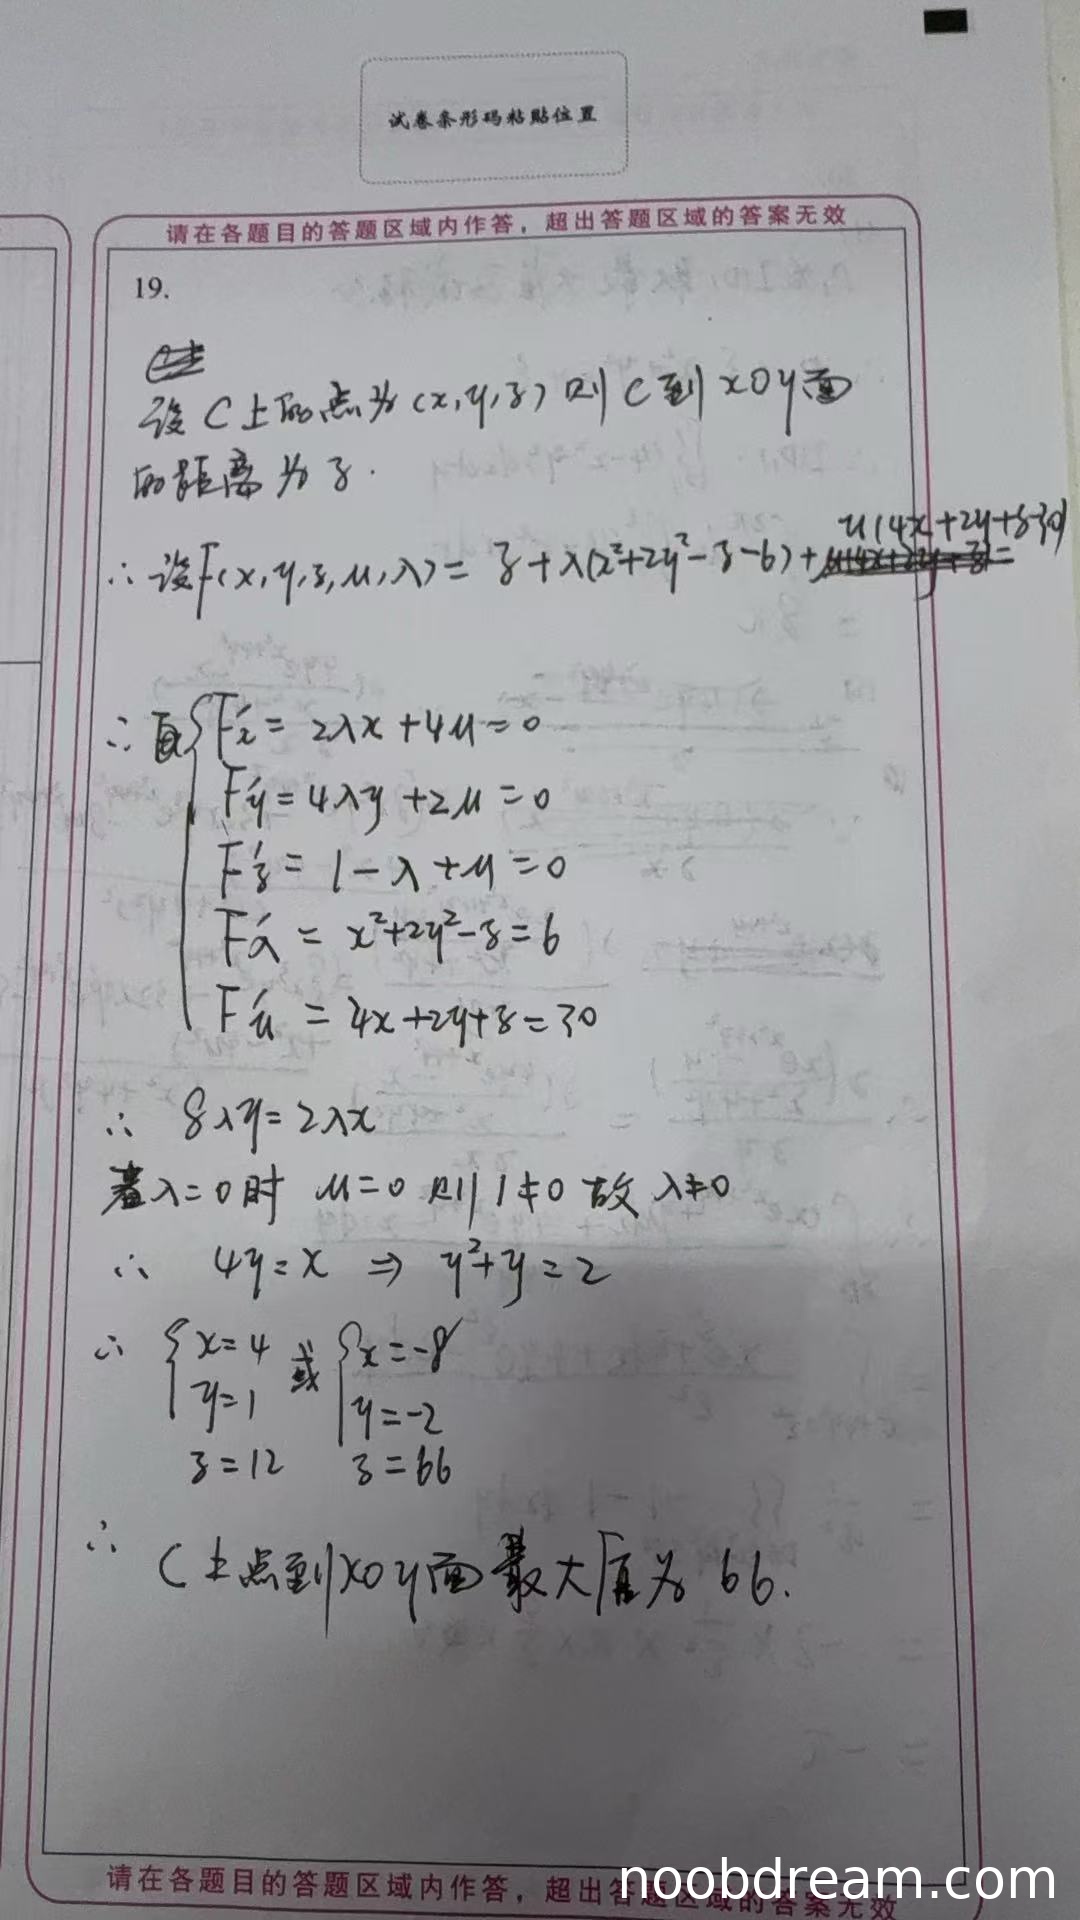 试卷条形码粘贴位置
请在各题目的答题区域内作答，超出答题区域的答案无效
19.
设C上的点为(x,y,z)则C到xOy面
的距离为z.
∴设F(x,y,z,μ,λ)=z+λ(x²+2y²-z-6)+μ(4x+2y+z-30)
∴ F'x=2λx+4μ=0
F'y=4λy+2μ=0
F'z=1-λ+μ=0
F'λ=x²+2y²-z=6
F'μ=4x+2y+z=30
∴ 8λy=2λx
若λ=0时 μ=0 则1≠0 故λ≠0
∴ 4y=x ⇒ y²+y=2
∴ {x=4 或 {x=-8
y=1 y=-2
z=12 z=66
∴ C上点到xOy面最大值为66.
请在各题目的答题区域内作答，超出答题区域的答案无效
noobdream.com